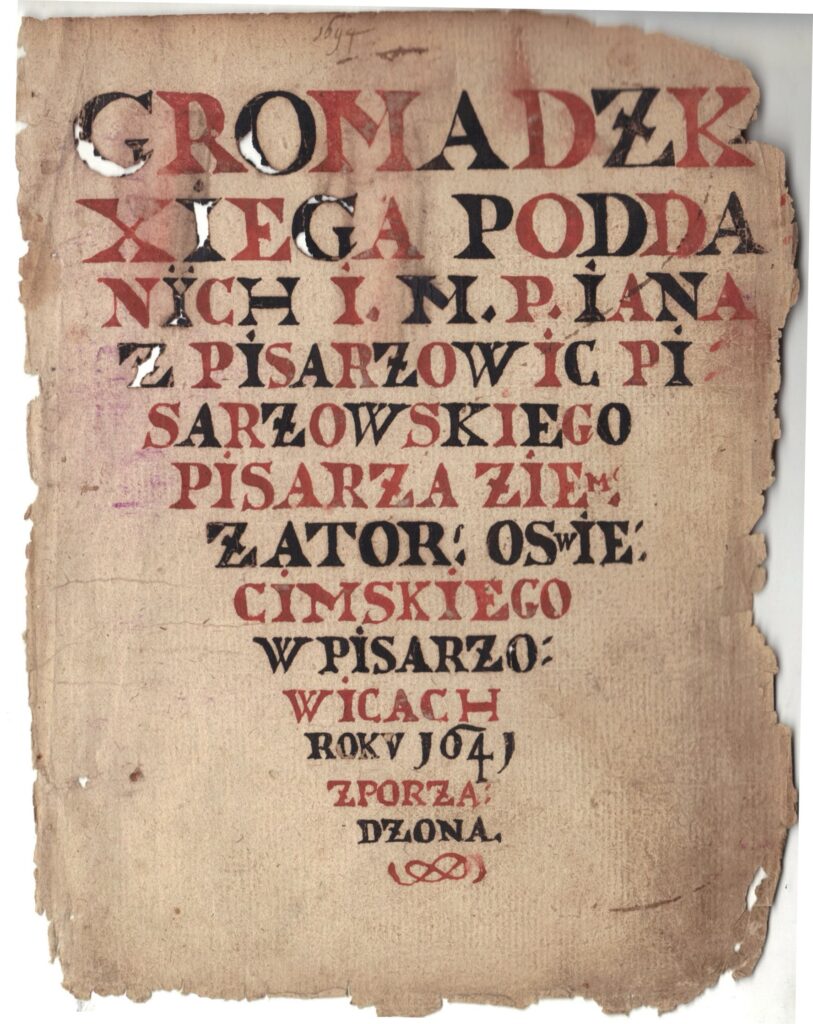 1694
GROMADZK
XIEGA PODDA
NÿCH I. M. P. IANA
Z PISARZOWIC PI:
SARZOWSKIEGO
PISARZA ZIEM:
ZATOR: OSWIE:
CIMSKIEGO
W PISARZO:
WICACH
ROKV 1641
ZPORZA:
DZONA.